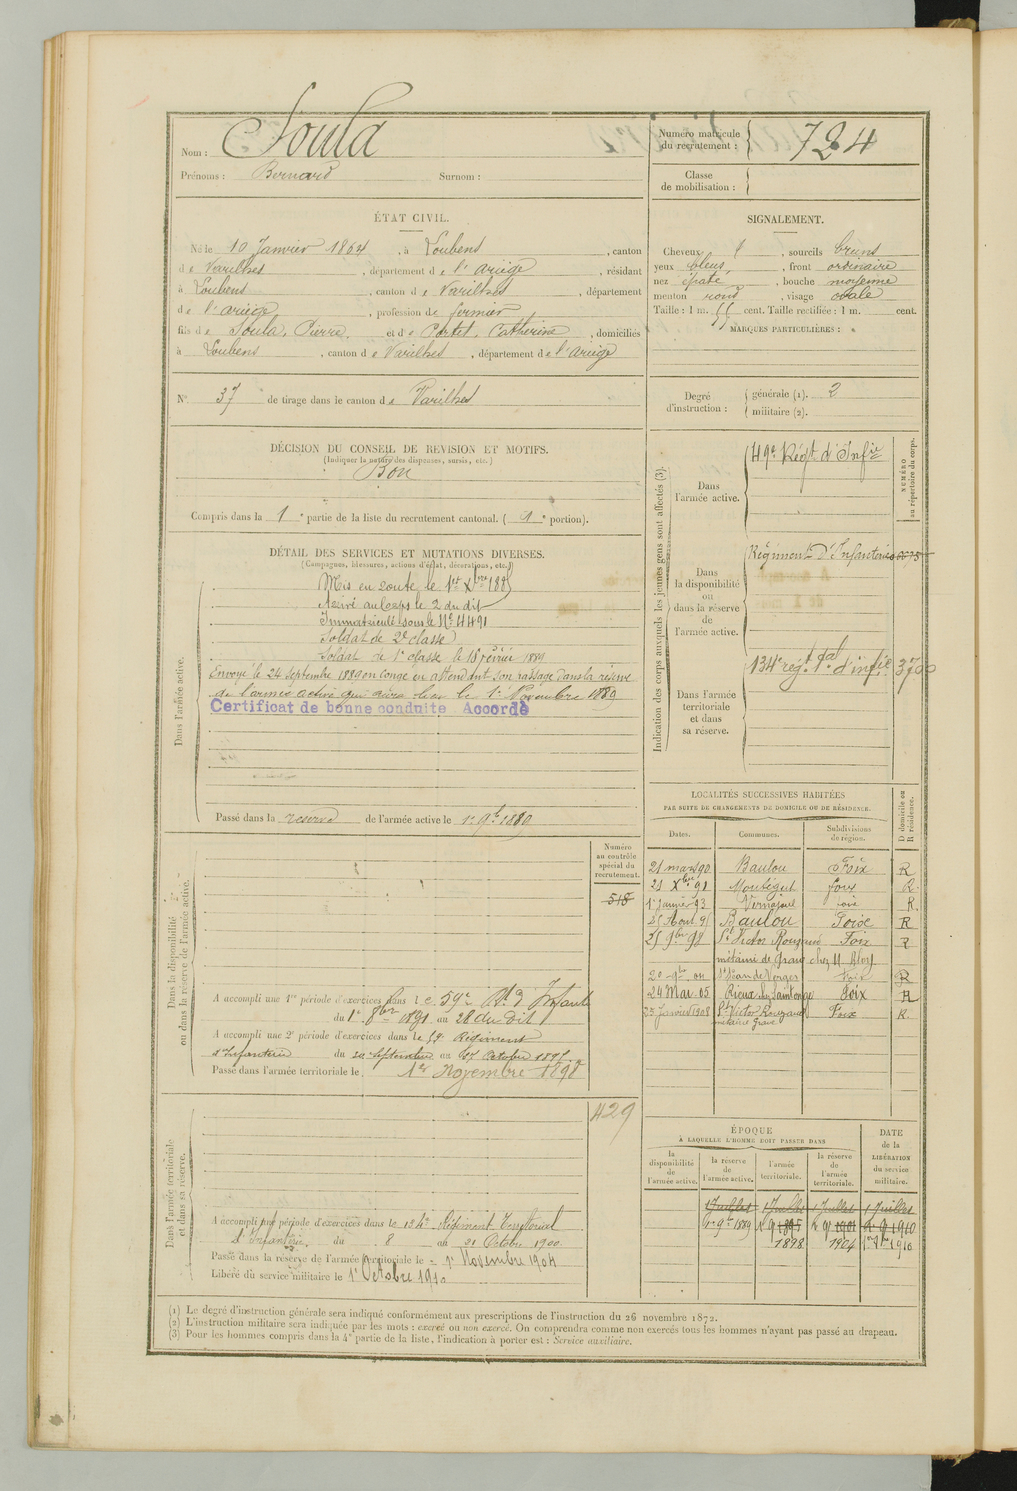 Nom : Soula
Prénoms : Bernard Surnom :
Numéro matricule du recrutement : 724
Classe de mobilisation :
ÉTAT CIVIL.
Né le 10 Janvier 1864, à Loubens, canton
de Varilhes, département de l'Ariège, résidant
à Loubens, canton de Varilhes, département
de l'Ariège, profession de fermier
fils de Soula, Pierre et de Portet, Catherine, domiciliés
à Loubens, canton de Varilhes, département de l'Ariège
N° 37 de tirage dans le canton de Varilhes
SIGNALEMENT.
Cheveux, sourcils bruns
yeux bleus, front ordinaire
nez épaté, bouche moyenne
menton rond, visage ovale
Taille : 1 m. cent. Taille rectifiée : 1 m. cent.
MARQUES PARTICULIÈRES :
Degré d'instruction : générale (1). 2
militaire (2).
DÉCISION DU CONSEIL DE REVISION ET MOTIFS.
(Indiquer la nature des dispenses, sursis, etc.)
Bon
Compris dans la 1e partie de la liste du recrutement cantonal. (1e portion).
DÉTAIL DES SERVICES ET MUTATIONS DIVERSES.
(Campagnes, blessures, actions d'éclat, décorations, etc.)
Dans l'armée active.
Mis en route le 1er Xbre 1885
Arrivé au Corps le 2 du dit
Immatriculé sous le N° 4491
Soldat de 2e classe
Soldat de 1e classe le
Envoyé le 24 Septembre 1889 en congé en attendant son passage dans la réserve
de l'armée active qui aura lieu le 1er Novembre 1889
Certificat de bonne conduite Accordé
Passé dans la réserve de l'armée active le 1r 9bre
Indication des corps auxquels les jeunes gens sont affectés (3).
NUMÉRO au répertoire du corps.
Dans l'armée active.
49e Régt d'Infie
Dans la disponibilité ou dans la réserve de l'armée active.
Régiment D'Infanterie
Dans l'armée territoriale et dans sa réserve.
134e régt tal d'infie
Dans la disponibilité ou dans la réserve de l'armée active.
Numéro au contrôle spécial du recrutement.
518
A accompli une 1re période d'exercices dans le 59e Rt d'Infant
du 1er 8bre 1891 au 28 du dit
A accompli une 2e période d'exercices dans le 59e Régiment
d'Infanterie du Septembre au Octobre
Passé dans l'armée territoriale le 1er Novembre 1898
LOCALITÉS SUCCESSIVES HABITÉES
PAR SUITE DE CHANGEMENTS DE DOMICILE OU DE RÉSIDENCE.
Dates. Communes. Subdivisions de région. D domicile ou R résidence.
21 mars 90 Baulou Foix R
21 Xbre 91 Montégut Foix R.
1er Janvier 93 Vernajoul Foix R.
Aout Baulou Foix R
9bre St Victor Rouzaud Foix R
métairie de
St Jean de Verges Foix R
24 Mai 05 Foix R
25 Janvier 1908 St Victor Rouzaud Foix R.
métairie
Dans l'armée territoriale et dans sa réserve.
429
A accompli une période d'exercices dans le 134e Régiment Territorial
d'Infanterie du 8 au 21 Octobre 1900
Passé dans la réserve de l'armée territoriale le 1r Novembre 1904
Libéré du service militaire le 1r Octobre 1910
ÉPOQUE
À LAQUELLE L'HOMME DOIT PASSER DANS
DATE de la LIBÉRATION du service militaire.
la disponibilité de l'armée active. la réserve de l'armée active. l'armée territoriale. la réserve de l'armée territoriale.
1 Juillet 1 Juillet 1 Juillet 1 Juillet
1r 9bre 1889
1898 1904
(1) Le degré d'instruction générale sera indiqué conformément aux prescriptions de l'instruction du 26 novembre 1872.
(2) L'instruction militaire sera indiquée par les mots : exercé ou non exercé. On comprendra comme non exercés tous les hommes n'ayant pas passé au drapeau.
(3) Pour les hommes compris dans la 4e partie de la liste, l'indication à porter est : Service auxiliaire.